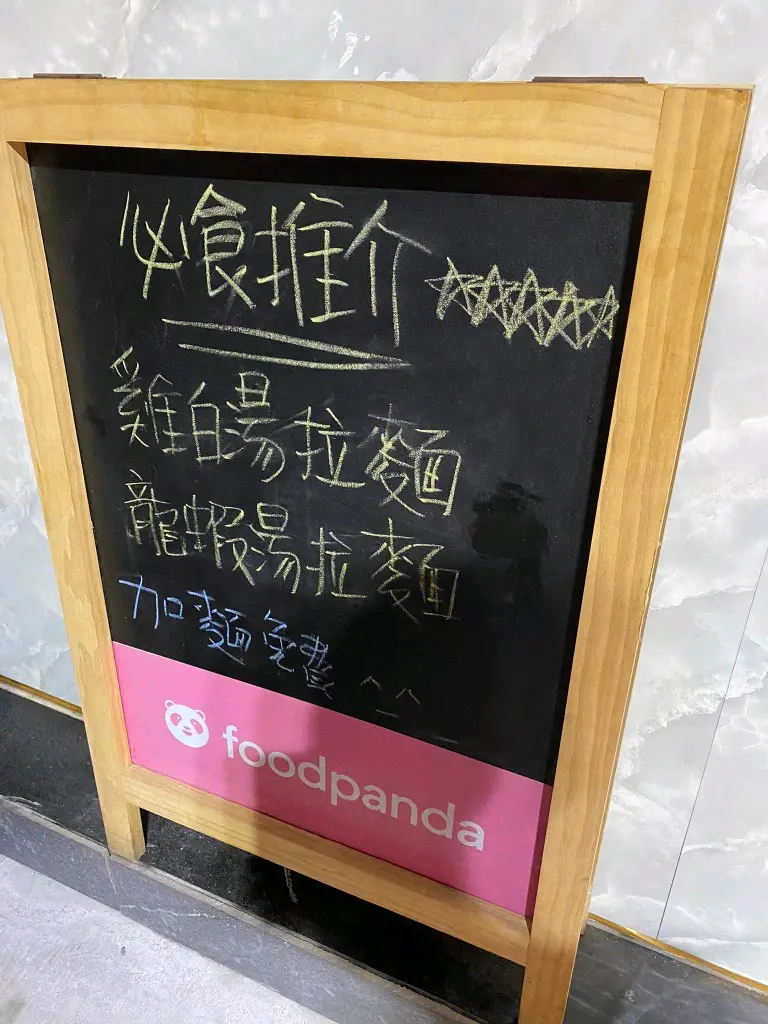 必食推介 ☆☆☆☆☆
雞白湯拉麵
龍蝦湯拉麵
加麵免費 ^_^
foodpanda